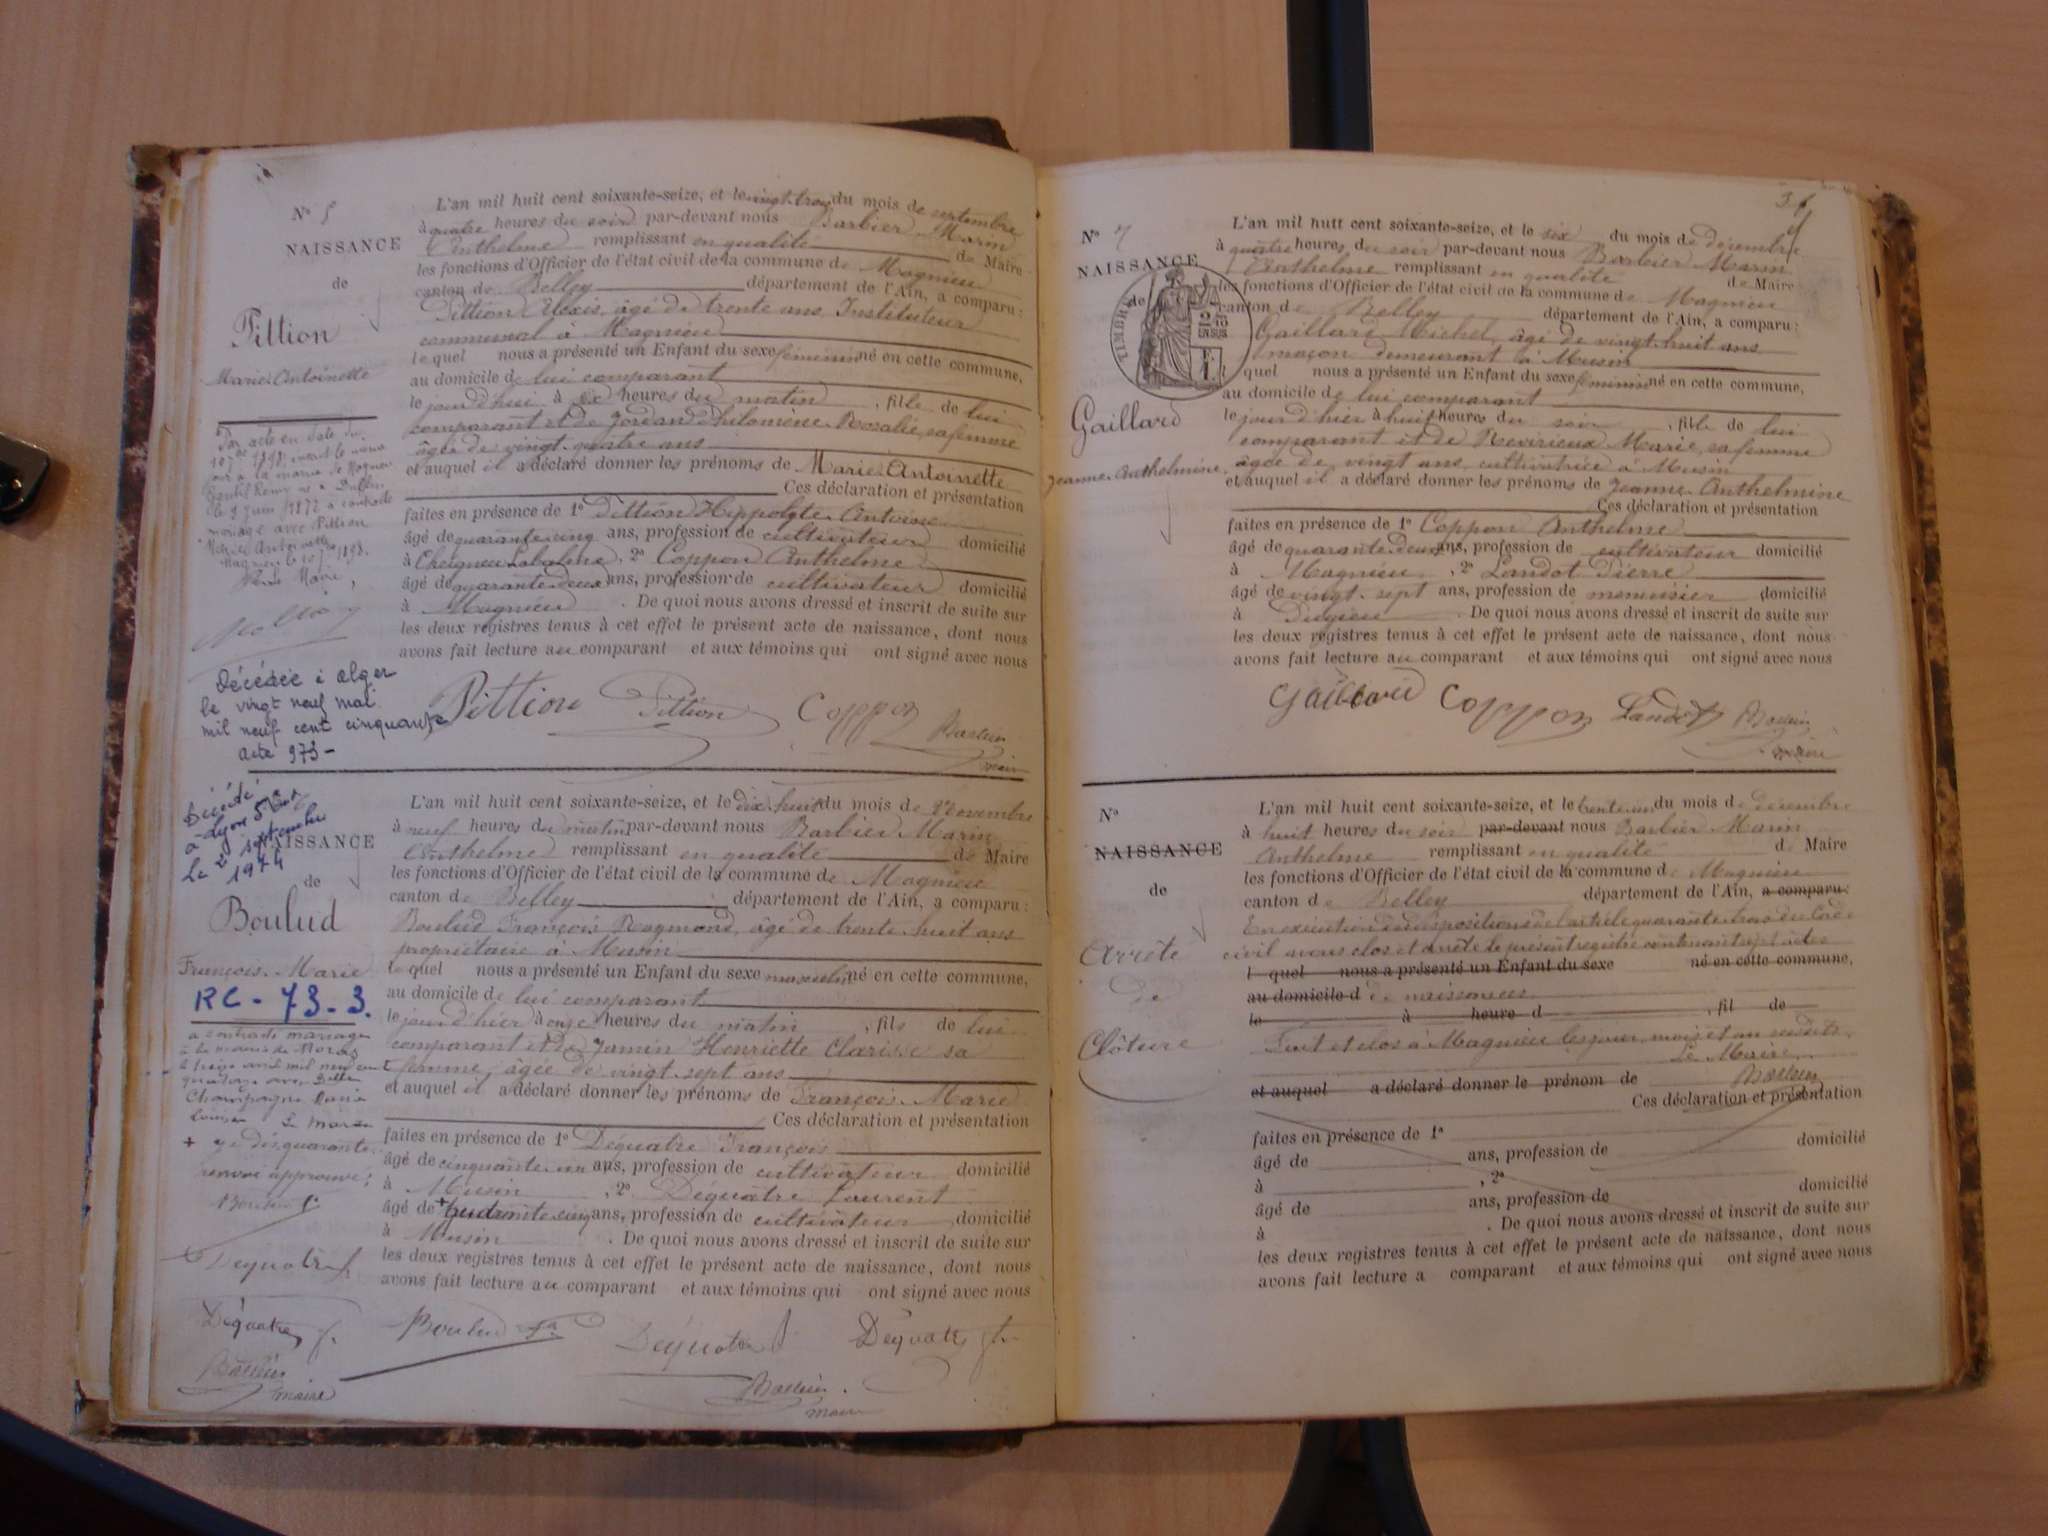 Nº 5
NAISSANCE
de
Pittion
Marie-Antoinette
Par acte en date du
10 1898, inscrit le même
jour à la mairie de Magnieu
le 9 Juin 1872 a contracté
mariage avec Pittion
Marie Antoinette
Magnieu le 10 1898.
Le Maire,
Décédée à Alger
le vingt neuf mai
mil neuf cent cinquante
acte 973-
L'an mil huit cent soixante-seize, et le vingt-trois du mois de septembre
à quatre heures du soir par-devant nous Barbier Marin
Anthelme remplissant en qualité de Maire
les fonctions d'Officier de l'état civil de la commune de Magnieu
canton de Belley département de l'Ain, a comparu :
Pittion Alexis, âgé de trente ans, Instituteur
communal à Magnieu
lequel nous a présenté un Enfant du sexe féminin né en cette commune,
au domicile de lui comparant
le jourd'hui à heures du matin, fille de lui
comparant et de Jordan Philomène Rosalie, sa femme
âgée de vingt-quatre ans
et auquel il a déclaré donner les prénoms de Marie-Antoinette
Ces déclaration et présentation
faites en présence de 1º Pittion Hippolyte-Antoine
âgé de quarante-cinq ans, profession de cultivateur domicilié
à Cheigneu-Labalme, 2º Coppon Anthelme
âgé de quarante-deux ans, profession de cultivateur domicilié
à Magnieu. De quoi nous avons dressé et inscrit de suite sur
les deux registres tenus à cet effet le présent acte de naissance, dont nous
avons fait lecture au comparant et aux témoins qui ont signé avec nous
Pittion Pittion Coppon Barbier
maire
Décédé
à Lyon 5e
le 2 septembre
1974
NAISSANCE
de
Boulud
François-Marie
RC-73-3.
a contracté mariage
à la mairie de
le treize avril mil neuf cent
quatorze avec
Champagne
Le Maire
+ quarante
renvoi approuvé ;
Boulud
Dequatre
L'an mil huit cent soixante-seize, et le dix-huit du mois de Novembre
à neuf heures du matin par-devant nous Barbier Marin
Anthelme remplissant en qualité de Maire
les fonctions d'Officier de l'état civil de la commune de Magnieu
canton de Belley département de l'Ain, a comparu :
Boulud François Raymond, âgé de trente-huit ans
propriétaire à Musin
lequel nous a présenté un Enfant du sexe masculin né en cette commune,
au domicile de lui comparant
le jour d'hier à onze heures du matin, fils de lui
comparant et de Jamin Henriette Clarisse sa
femme, âgée de vingt-sept ans
et auquel il a déclaré donner les prénoms de François-Marie
Ces déclaration et présentation
faites en présence de 1º Déquatre François
âgé de cinquante-un ans, profession de cultivateur domicilié
à Musin, 2º Déquatre Laurent
âgé de + quarante-cinq ans, profession de cultivateur, domicilié
à Musin. De quoi nous avons dressé et inscrit de suite sur
les deux registres tenus à cet effet le présent acte de naissance, dont nous
avons fait lecture au comparant et aux témoins qui ont signé avec nous
Déquatre Boulud Déquatre Déquatre
Barbier
maire
Barbier
maire
Nº 7
NAISSANCE
de
TIMBRE
Gaillard
Jeanne-Anthelmine
L'an mil huit cent soixante-seize, et le six du mois de décembre
à quatre heures du soir par-devant nous Barbier Marin
Anthelme remplissant en qualité de Maire
les fonctions d'Officier de l'état civil de la commune de Magnieu
canton de Belley département de l'Ain, a comparu :
Gaillard Michel, âgé de vingt-huit ans
maçon demeurant à Musin
quel nous a présenté un Enfant du sexe féminin né en cette commune,
au domicile de lui comparant
le jour d'hier à huit heures du soir, fille de lui
comparant et de Revirieux Marie, sa femme
âgée de vingt ans, cultivatrice à Musin
et auquel il a déclaré donner les prénoms de Jeanne-Anthelmine
Ces déclaration et présentation
faites en présence de 1º Coppon Anthelme
âgé de quarante-deux ans, profession de cultivateur domicilié
à Magnieu, 2º Landot Pierre
âgé de vingt-sept ans, profession de menuisier domicilié
à Pugieu. De quoi nous avons dressé et inscrit de suite sur
les deux registres tenus à cet effet le présent acte de naissance, dont nous
avons fait lecture au comparant et aux témoins qui ont signé avec nous
Gaillard Coppon Landot Barbier
maire
Nº
NAISSANCE
de
Arrêté
de
Clôture
L'an mil huit cent soixante-seize, et le trente-un du mois de décembre
à huit heures du soir par-devant nous Barbier Marin
Anthelme remplissant en qualité de Maire
les fonctions d'Officier de l'état civil de la commune de Magnieu
canton de Belley département de l'Ain, a comparu :
En exécution des dispositions de l'article quarante-trois du Code
civil avons clos et arrêté le présent registre contenant sept actes
l quel nous a présenté un Enfant du sexe né en cette commune,
au domicile d de naissances
le à heure d, fil de
Fait et clos à Magnieu les jour, mois et an susdits
Le Maire
et auquel a déclaré donner le prénom de Barbier
Ces déclaration et présentation
faites en présence de 1º
âgé de ans, profession de domicilié
à, 2º
âgé de ans, profession de domicilié
à. De quoi nous avons dressé et inscrit de suite sur
les deux registres tenus à cet effet le présent acte de naissance, dont nous
avons fait lecture a comparant et aux témoins qui ont signé avec nous